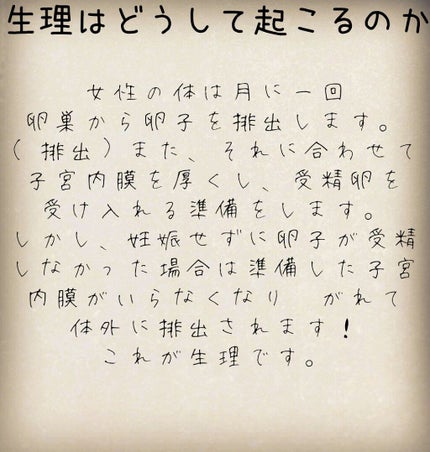 生理はどうして起こるのか
女性の体は月に一回
卵巣から卵子を排出します。
(排出)また、それに合わせて
子宮内膜を厚くし、受精卵を
受け入れる準備をします。
しかし、妊娠せずに卵子が受精
しなかった場合は準備した子宮
内膜がいらなくなり　がれて
体外に排出されます!
これが生理です。